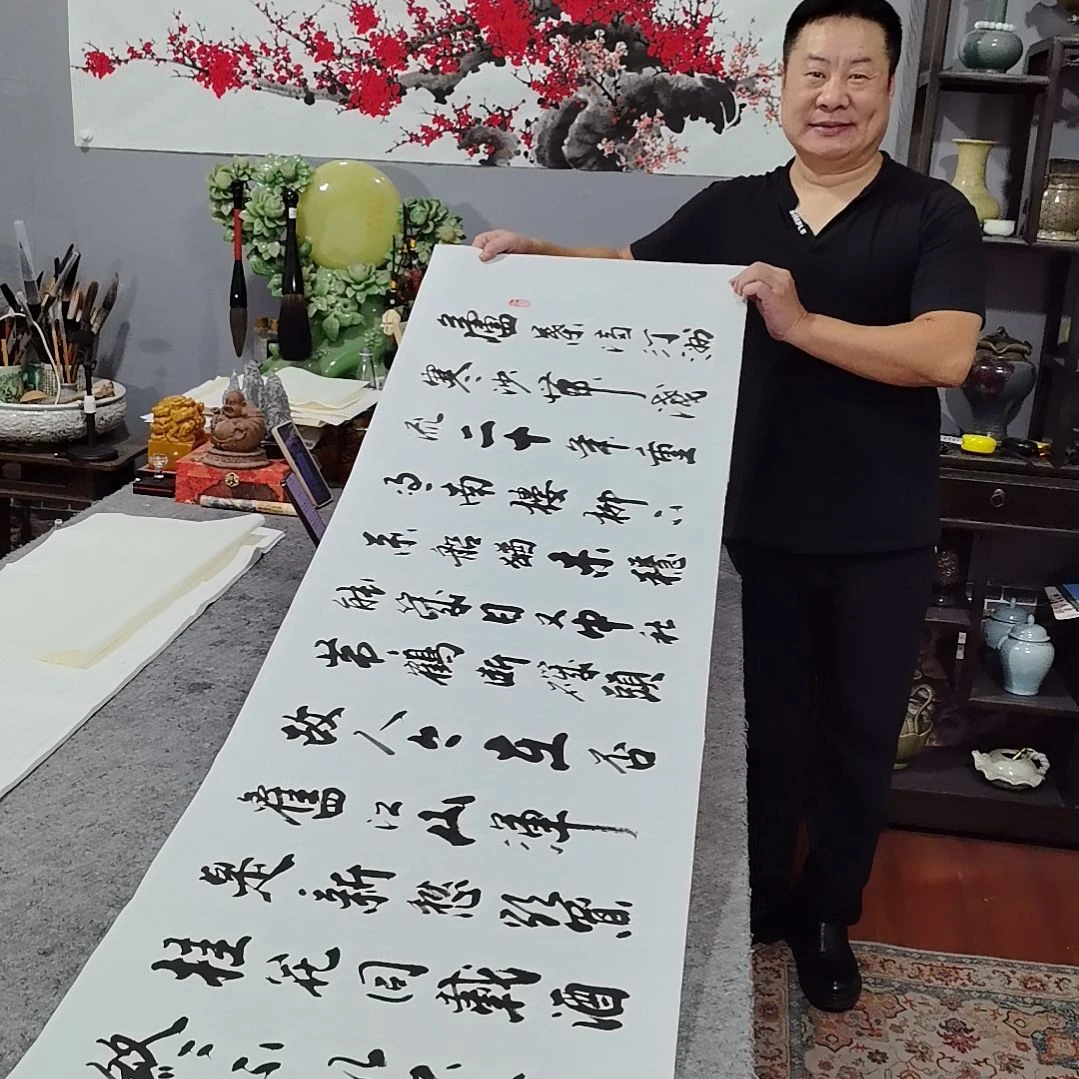 蘆葉滿汀洲
寒沙帶淺
流二十年重
過南樓柳下
系船猶未穩
能幾日又中秋
黃鶴斷磯頭
故人今在否
舊江山渾
是新愁欲買
桂花同載酒
終不似